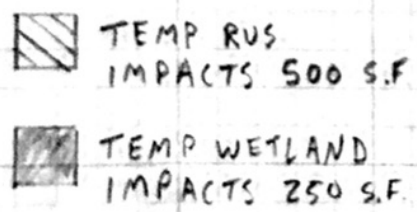 TEMP RUS
IMPACTS 500 S.F
TEMP WETLAND
IMPACTS 250 S.F.